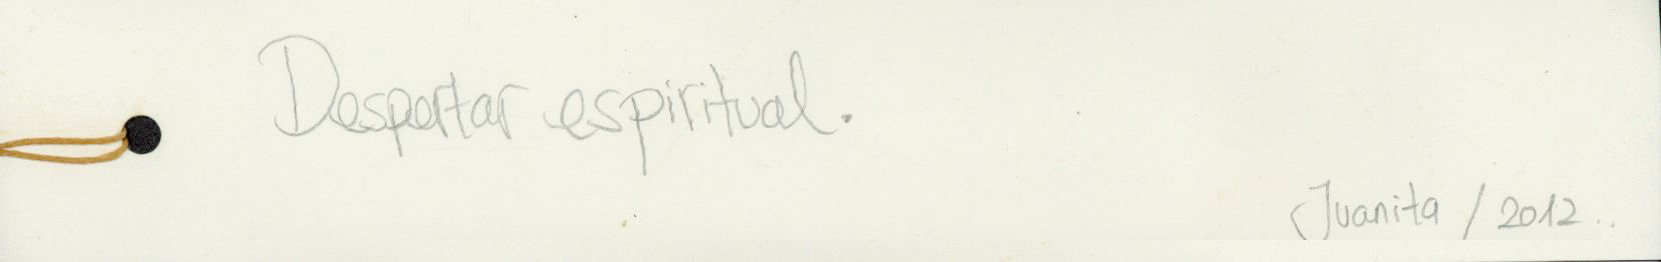 Despertar espiritual.
Juanita / 2012..